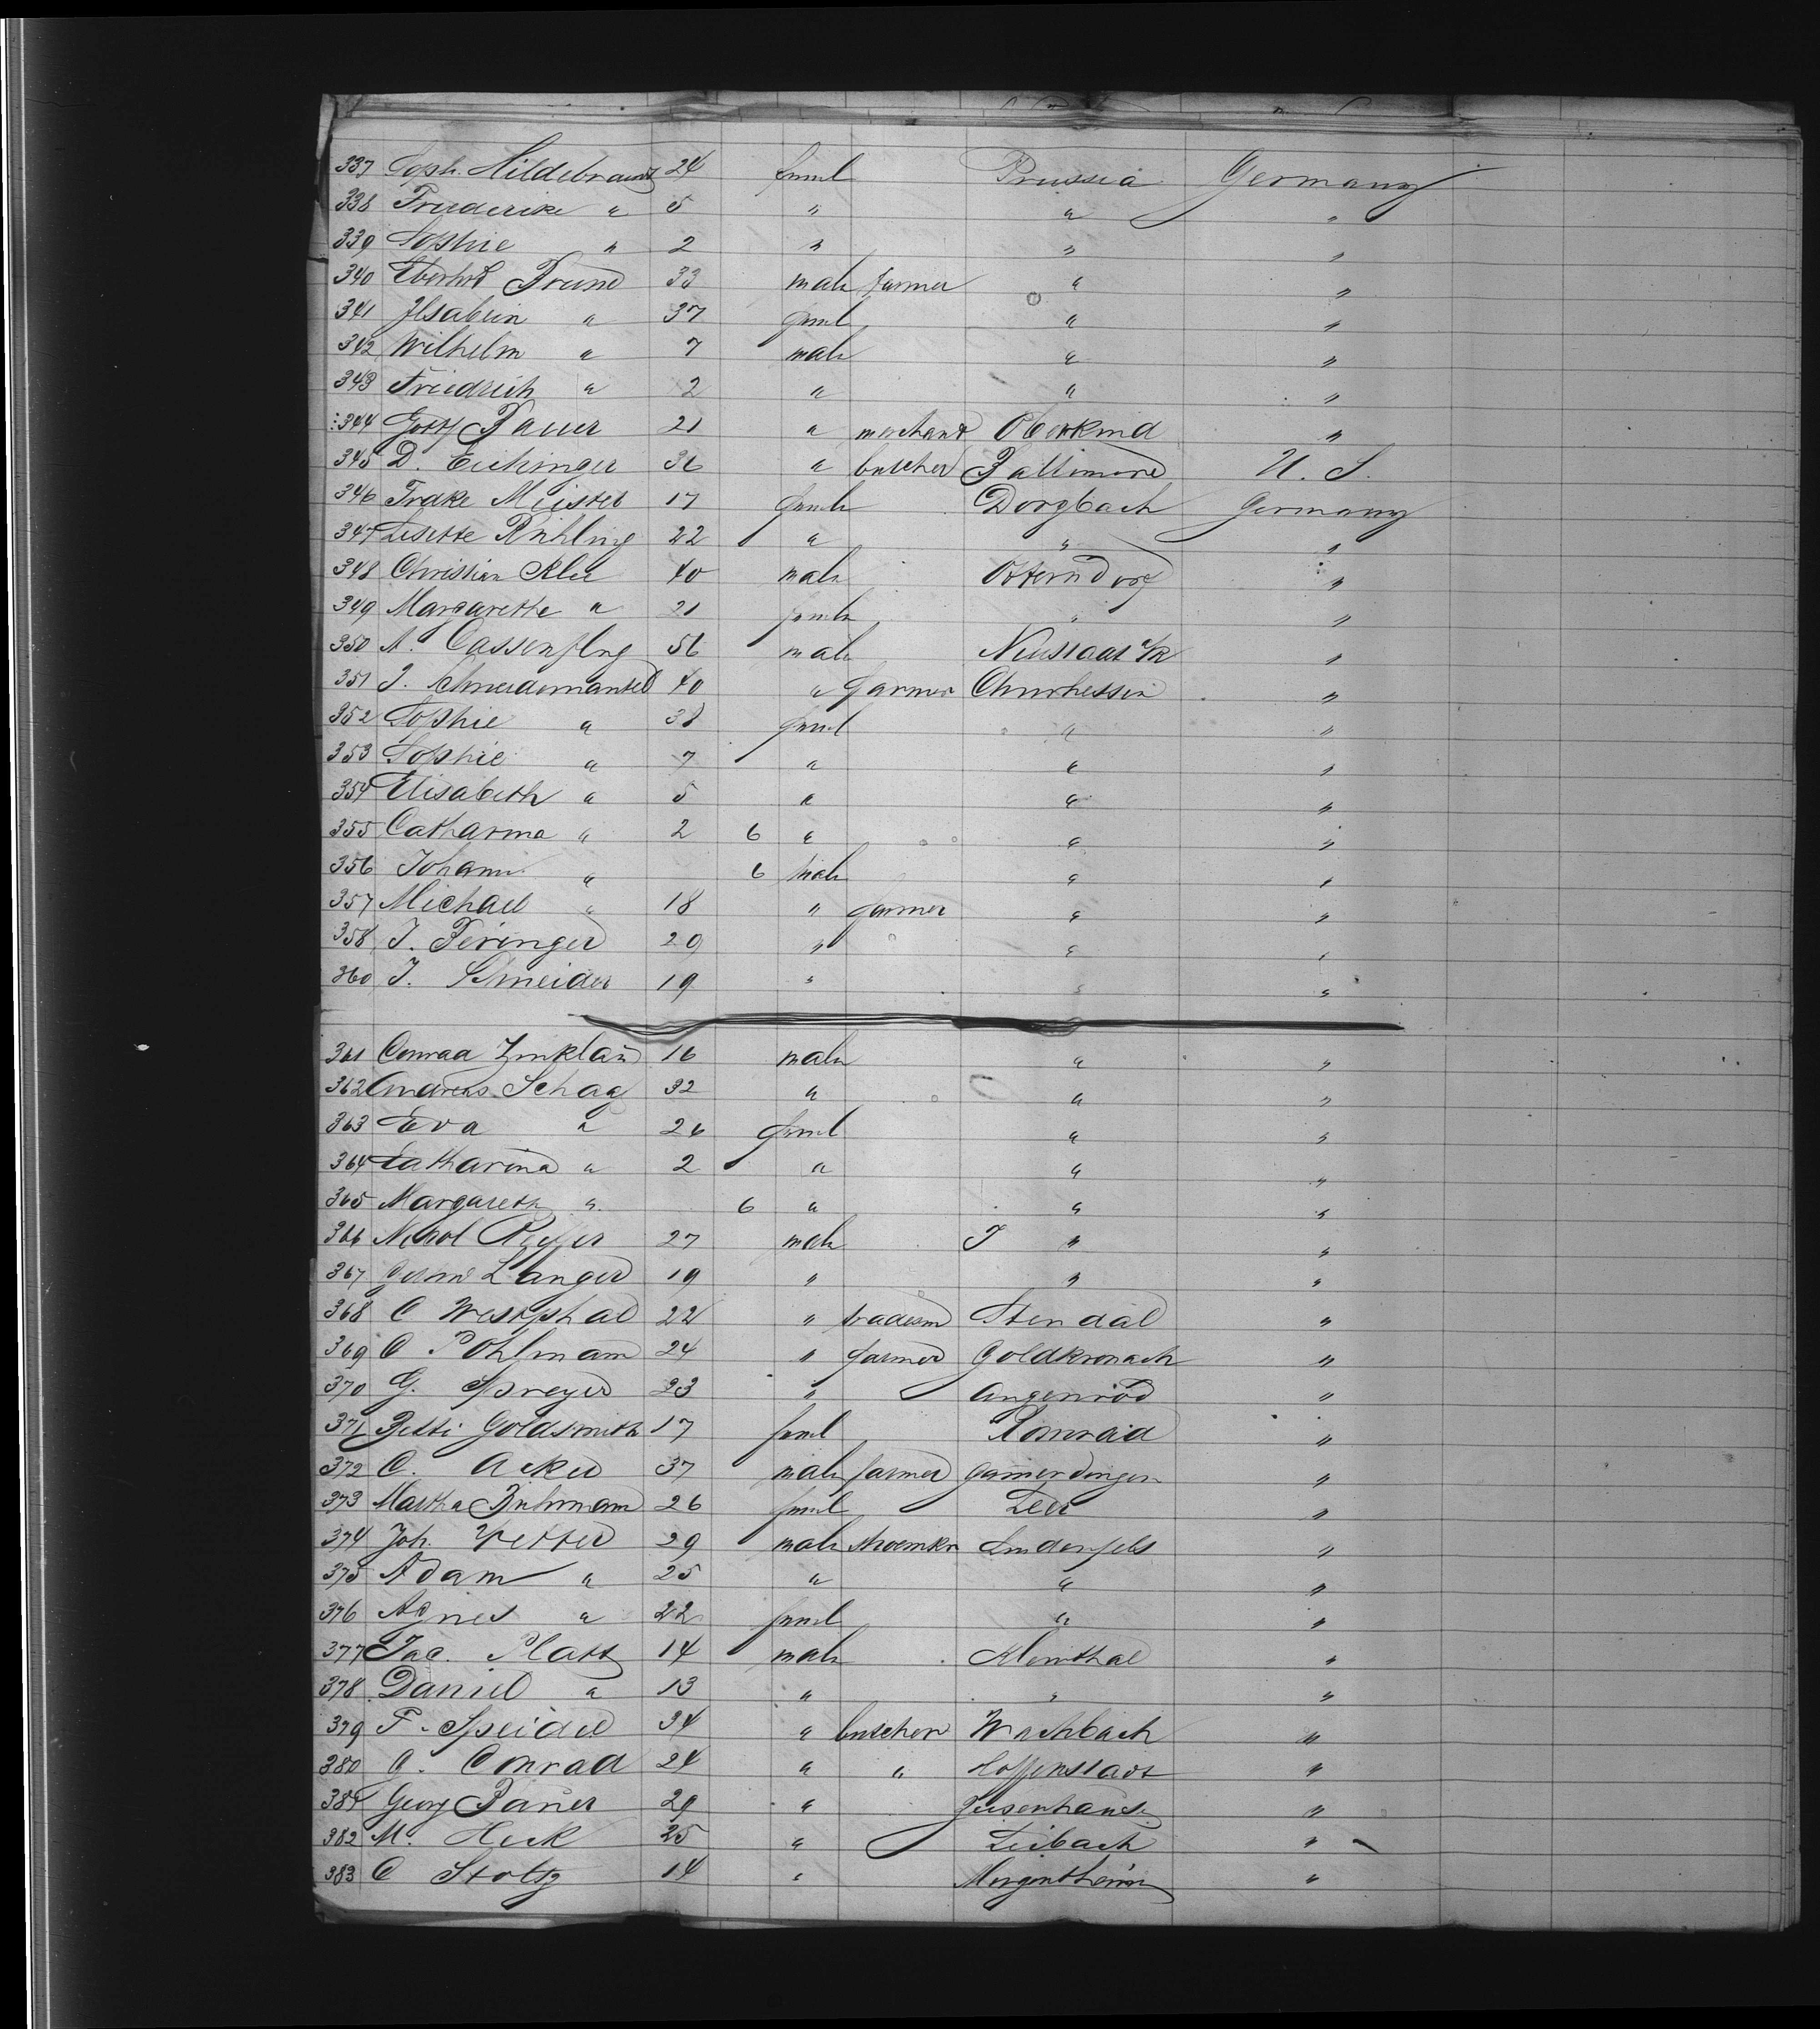 337 Soph. Hildebrandt 24 feml Prussia Germany
338 Friederike " 5 " " "
339 Sophie " 2 " " "
340 Eberhrd Brune 33 male farmer " "
341 Ilsabein " 37 feml " "
342 Wilhelm " 7 male " "
343 Friedrich " 2 " " "
344 Gottf Bauer 21 " merchant "
345 D. Eichinger 36 " butcher Baltimore U. S.
346 Meister 17 female Dorzbach Germany
347 Lisette 22 " " "
348 Christian Klee 40 male Otterndorf "
349 Margarethe " 21 female " "
350 A. 56 male "
351 J. Schneidemantel 40 " farmer Churhessen "
352 Sophie " 38 feml " "
353 Sophie " 7 " " "
354 Elisabeth " 5 " " "
355 Catharina " 2 6 " " "
356 Johann " 6 male " "
357 Michael " 18 " farmer " "
358 J. Beringer 29 " " "
360 J. Schneider 19 " " "
361 Conrad 16 male " "
362 Andreas Schag 32 " " "
363 Eva " 26 feml " "
364 Catharina " 2 " " "
365 Margareth " 6 " " "
366 27 male " "
367 Langer 19 " " "
368 C Westphal 22 " tradesm Stendal "
369 C Pohlmann 24 " farmer Goldkronach "
370 G. Speyer 23 " Angenrod "
371 Betti Goldsmith 17 feml "
372 C. Acker 37 male farmer Gamerdingen "
373 Martha Buhrmann 26 feml Leer "
374 Joh. Vetter 29 male shoemkr Lindenfels "
375 Adam " 25 " " "
376 Agnes " 22 feml " "
377 Jac. Platt 14 male "
378 Daniel " 13 " " "
379 F. Speidel 34 " butcher Wachbach "
380 G. Conrad 24 " " "
381 Georg Bauer 29 " "
382 M. Heck 25 " Leibach "
383 C Stoltz 14 " Mergentheim "